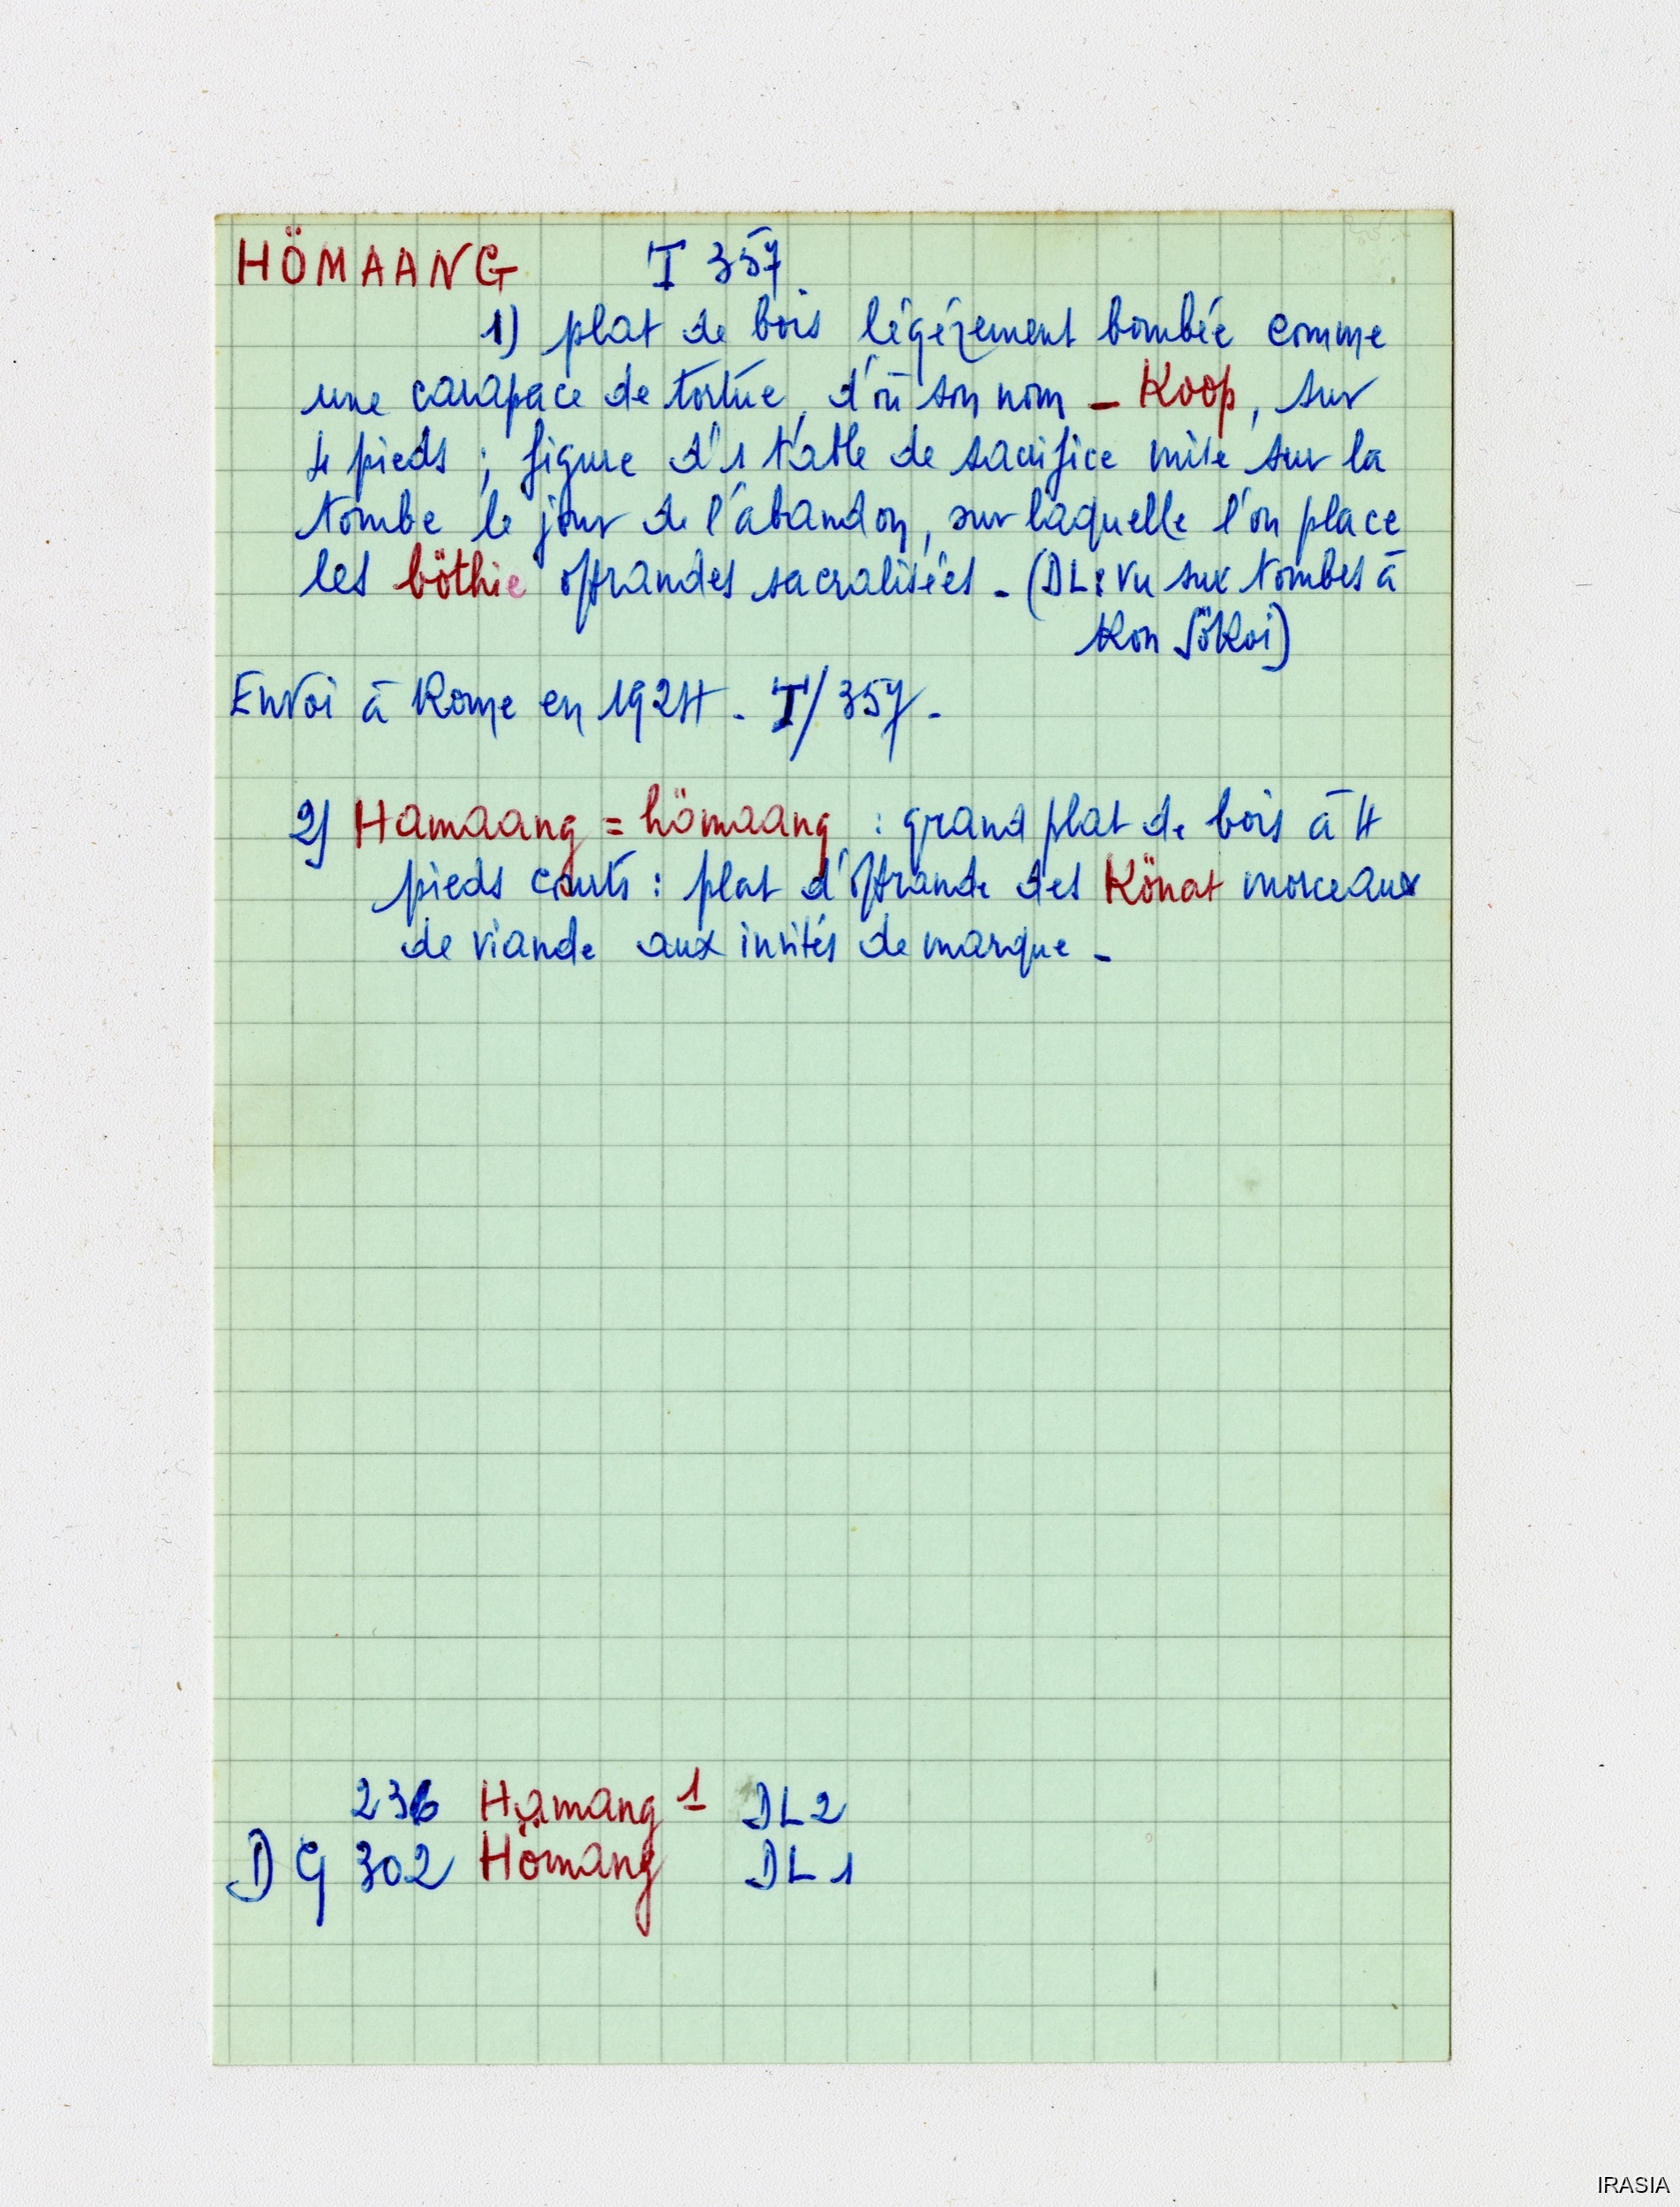 HÖMAANG T 357
1) plat de bois légèrement bombée comme
une carapace de tortue, d'où son nom - Koop, sur
4 pieds ; figure d'1 table de sacrifice mise sur la
tombe le jour de l'abandon, sur laquelle l'on place
les böthie offrandes sacralisées - (DL: vu sur tombes à
Kon Sökoi)
Envoi à Rome en 1924 - T/357 -
2) Hamaang = hömaang : grand plat de bois à 4
pieds courts : plat d'offrande des Könat morceaux
de viande aux invités de marque -
236 Hamang 1 DL2
DG 302 Hömang DL1
IRASIA